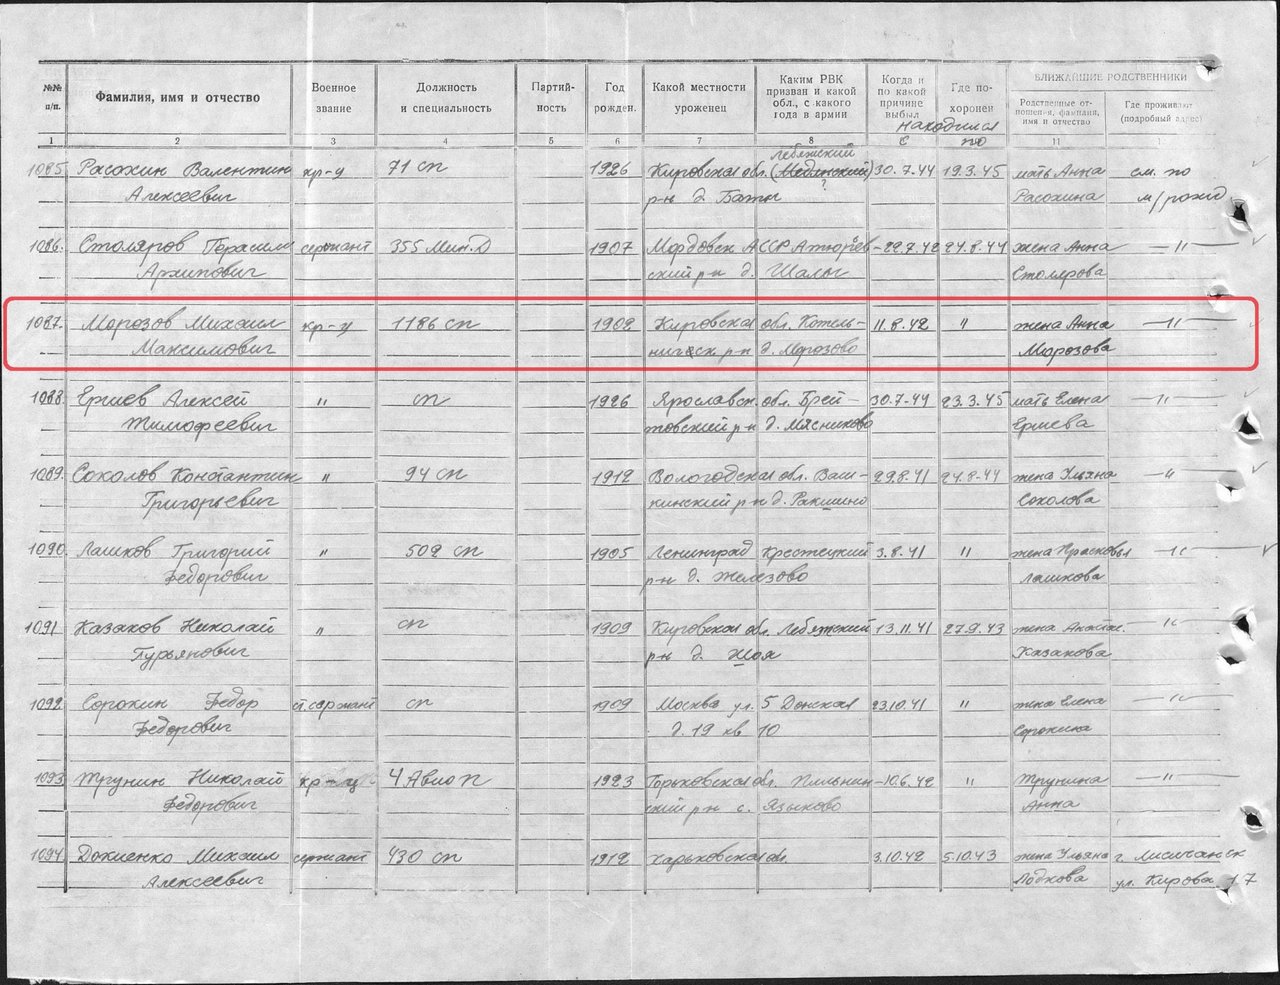 №№ п/п.
Фамилия, имя и отчество
Военное звание
Должность и специальность
Партий-ность
Год рожден.
Какой местности уроженец
Каким РВК призван и какой обл., с какого года в армии
Когда и по какой причине выбыл
Где по-хоронен
БЛИЖАЙШИЕ РОДСТВЕННИКИ
Родственные от-ношения, фамилия, имя и отчество
Где проживают (подробный адрес)
находился
с по
1 2 3 4 5 6 7 8 11
Лебяжский
1085 Расохин Валентин кр-ц 71 сп 1926 Кировская обл. (Медянский) 30.7.44 19.3.45 мать Анна см. по
Алексеевич ? р-н д. Баты Расохина м/рожд
1086. Столяров Герасим сержант 355 Мин.Д 1907 Мордовск АССР Атюрьев -22.7.42 24.8.44 жена Анна —"—
Архипович ский р-н д. Столярова
1087. Морозов Михаил кр-ц 1186 сп 1902 Кировская обл. Котель- 11.8.42 " жена Анна —"—
Максимович ническ р-н д. Морозово Морозова
1088. Ершев Алексей " сп 1926 Ярославск. обл. Брей- 30.7.44 23.3.45 мать Елена —"—
Тимофеевич товский р-н д. Мясниково Ершева
1089. Соколов Константин " 94 сп 1912 Вологодская обл. Ваш- 29.8.41 24.8.44 жена Ульяна "
Григорьевич кинский р-н д. Ракишино Соколова
1090. Лашков Григорий " 509 сп 1905 Ленинград Крестецкий 3.8.41 " жена Прасковья —"—
Федорович р-н д. Железово Лашкова
1091 Казаков Николай " сп 1909 Кировская обл. Лебяжский 13.11.41 27.9.43 жена Анастас. "
Гурьянович р-н д. Шоя Казакова
1092. Сорокин Федор ст. сержант сп 1909 Москва ул. 5 Донская 23.10.41 " жена Елена —"—
Федорович д. 19 кв 10 Сорокина
1093. Тргунин Николай кр-ц 4 Авиоп 1923 Горьковская обл. Пильнин -10.6.42 " Тргунина —"—
Федорович ский р-н с. Языково Анна
1094. Михаил сержант 430 сп 1912 Харьковская обл. 3.10.42 5.10.43 жена Ульяна г. Лисичанск
Алексеевич ул. Кирова 17